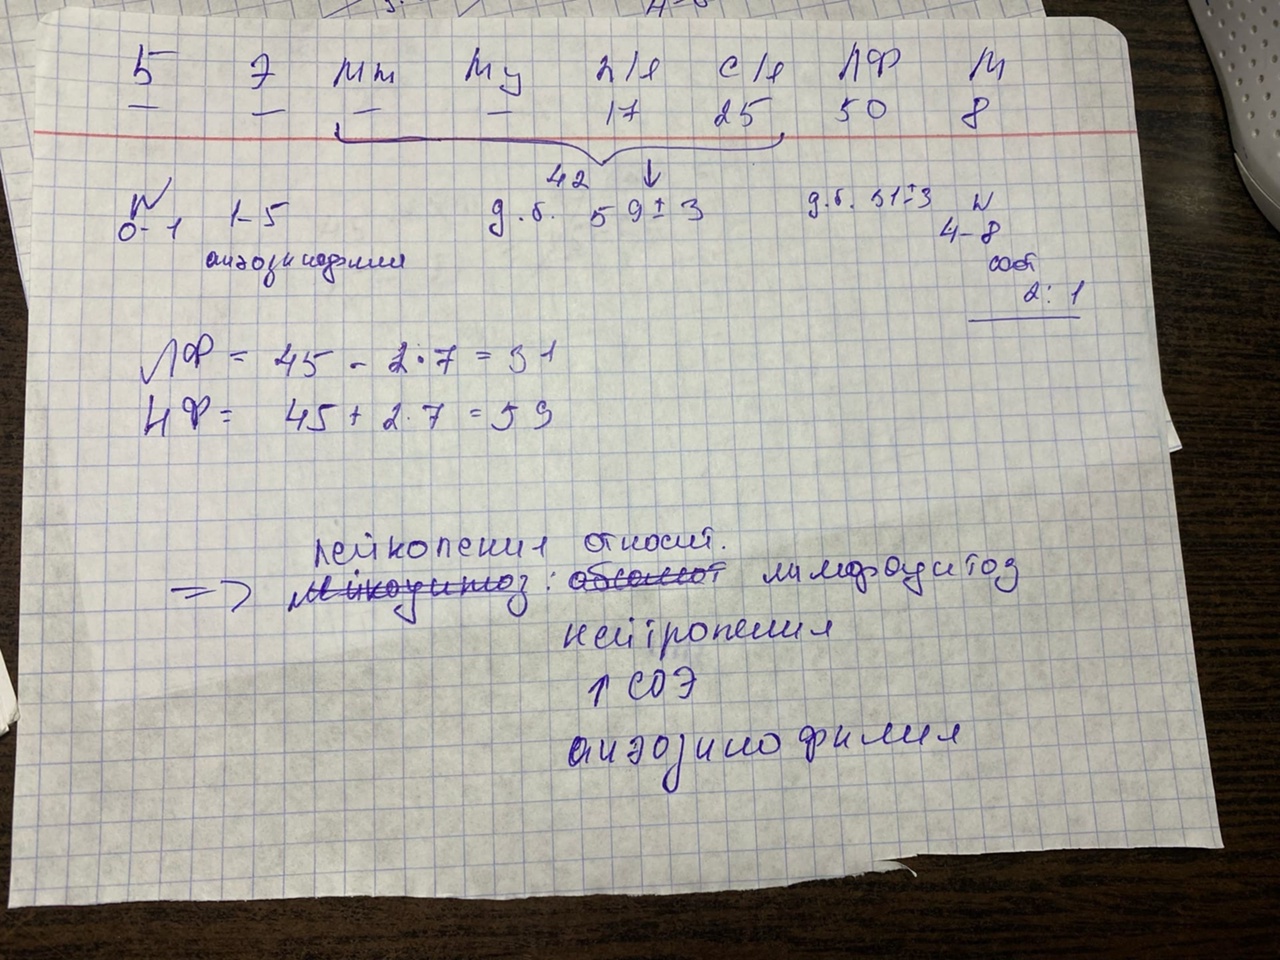 Б Э Мм Му П/Я С/Я ЛФ М
— — — — 17 25 50 8
42 ↓
N 0-1 1-5 д.б. 59±3 д.б. 31±3 N 4-8
анэозинофилия соот
2:1
ЛФ = 45 - 2·7 = 31
НФ = 45 + 2·7 = 59
лейкопения относит.
=> лейкоцитоз: абсолют лимфоцитоз
нейтропения
↑ СОЭ
анэозинофилия